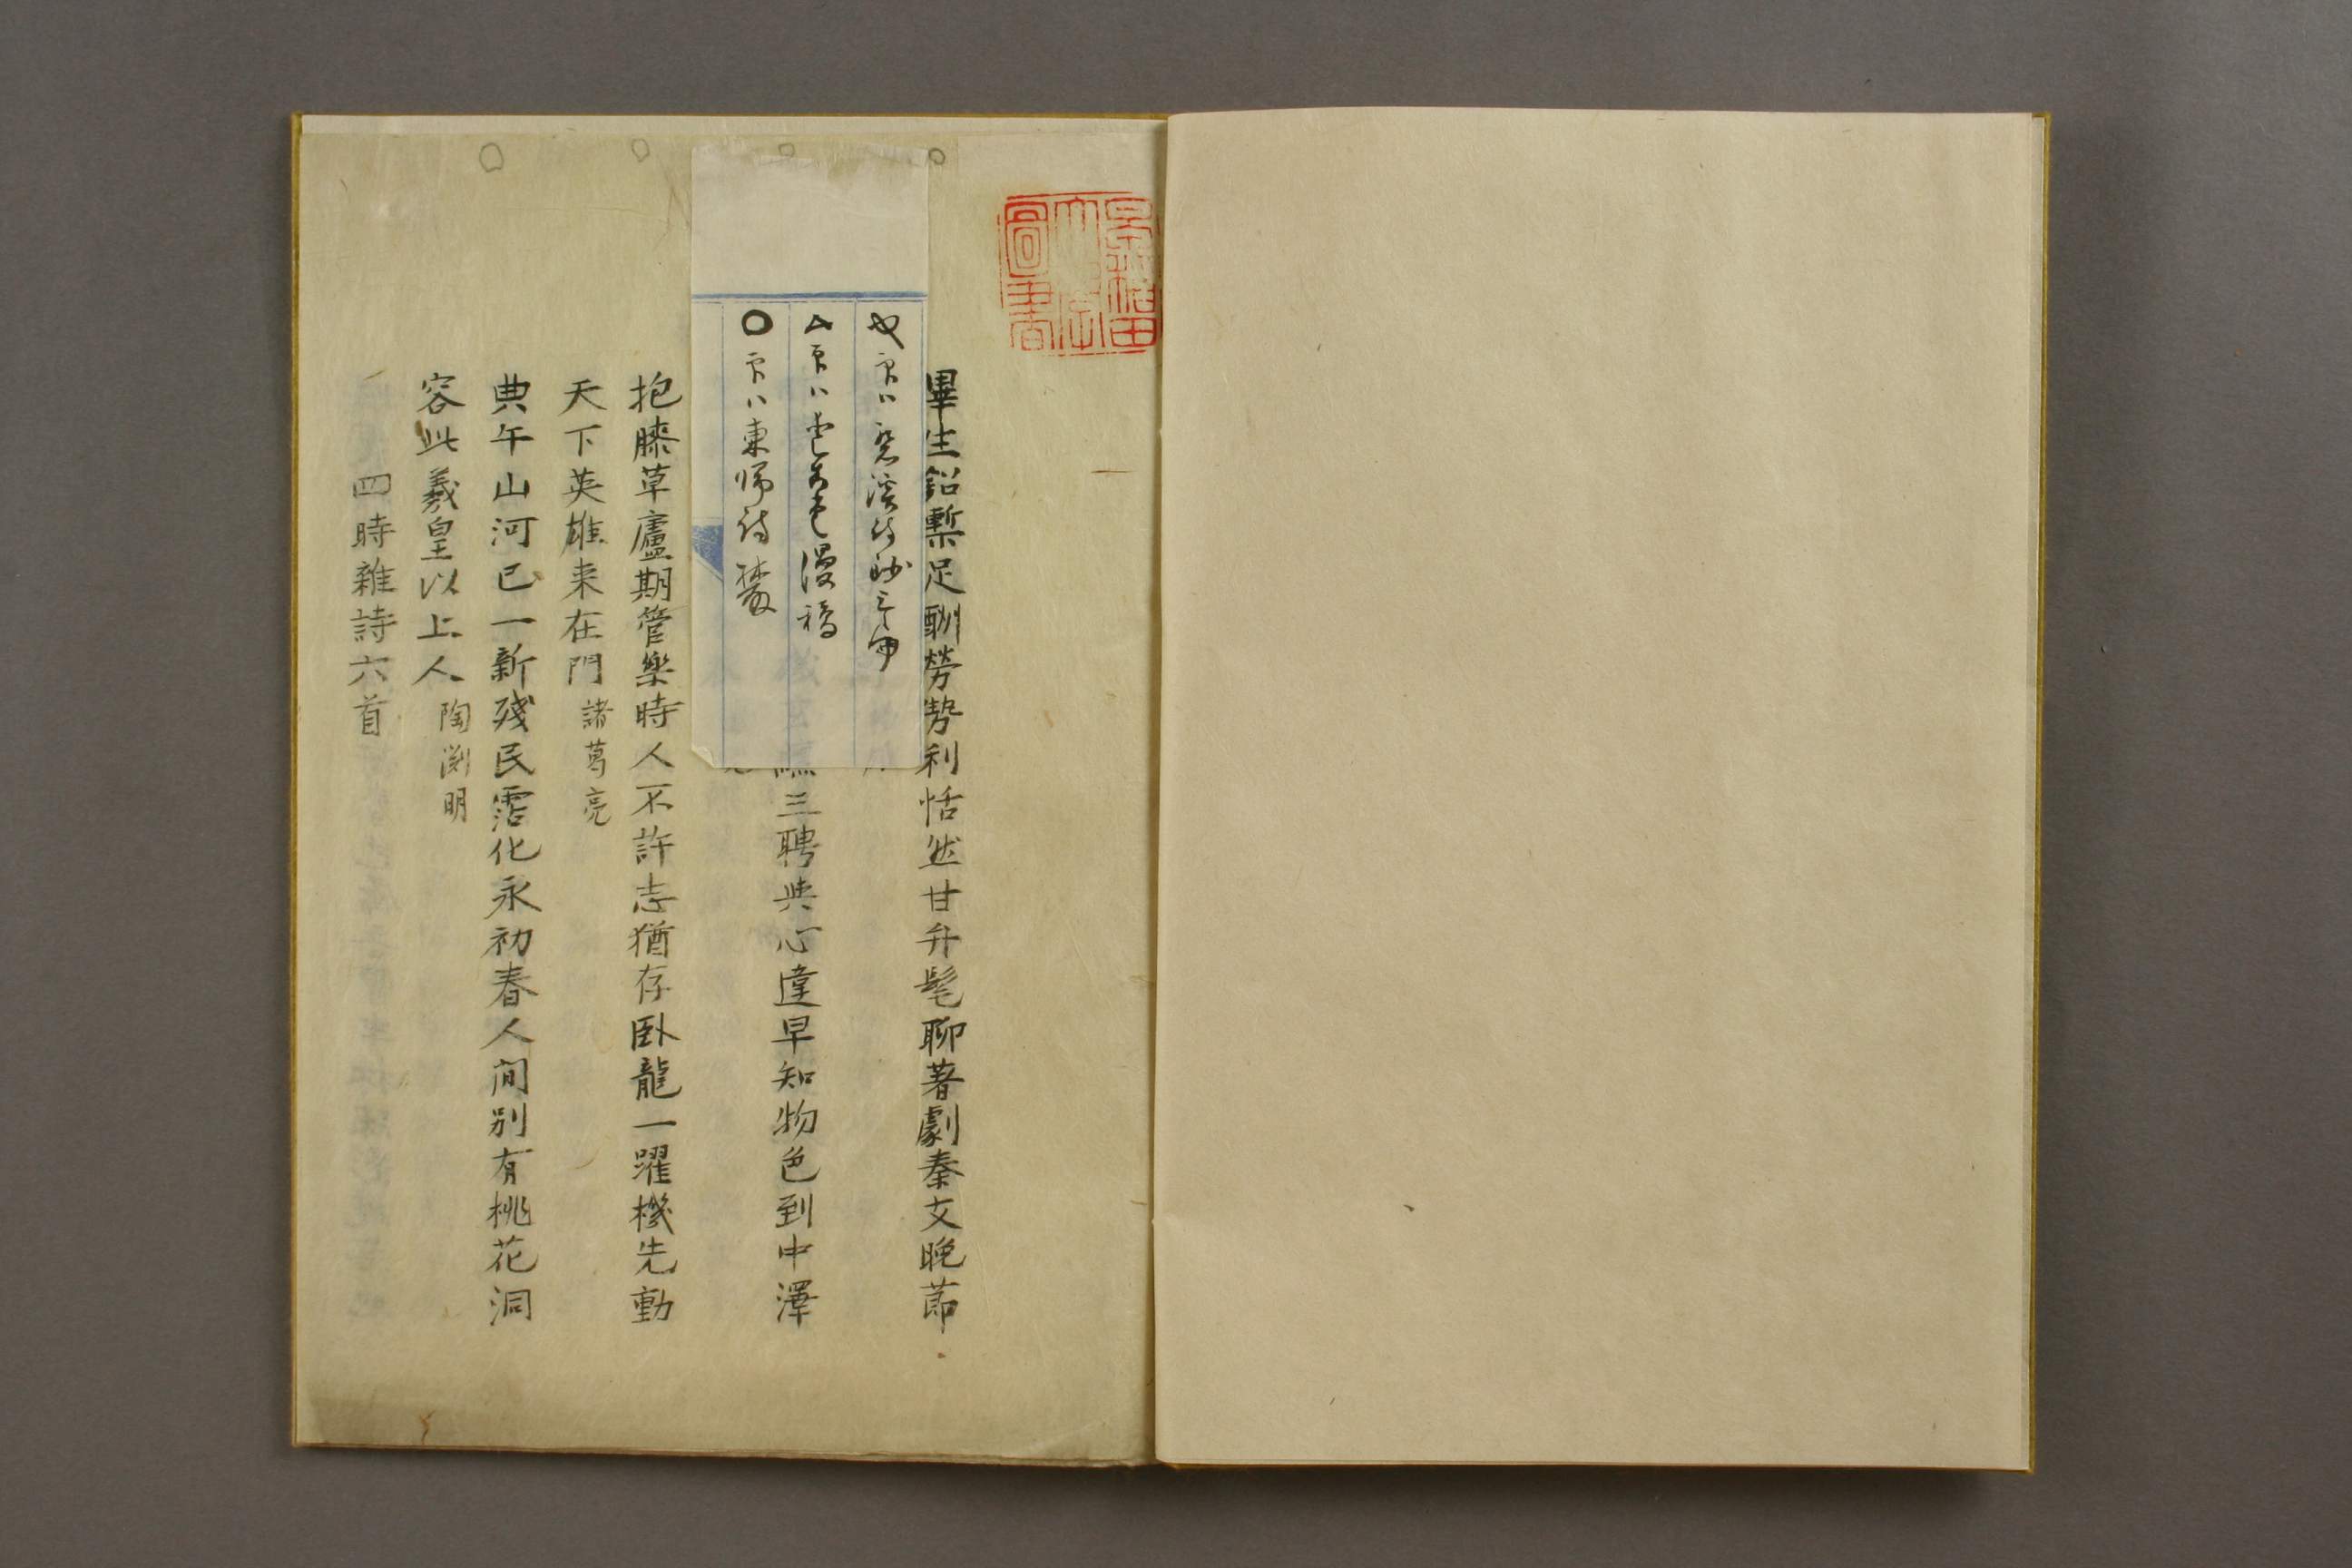 早稲田
大学
圖書
畢生鉛槧足酬勞勢利恬然甘弁髦聊著劇秦文晩節
三聘與心違早知物色到中澤
抱膝草廬期管樂時人不許志猶存臥龍一躍機先動
天下英雄来在門 諸葛亮
典午山河已一新残民霑化永初春人間別有桃花洞
容此羲皇以上人 陶渕明
四時雑詩六首
○印ハ東帰詩